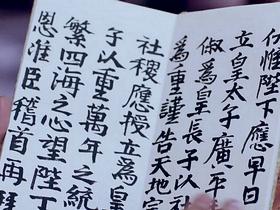 伏惟陛下應早日
立皇太子廣平
俶為皇長子以社
為重謹告天地宗
社稷應授立為皇
子以重萬年之統
繁四海之心望陛下
恩准臣稽首再拜